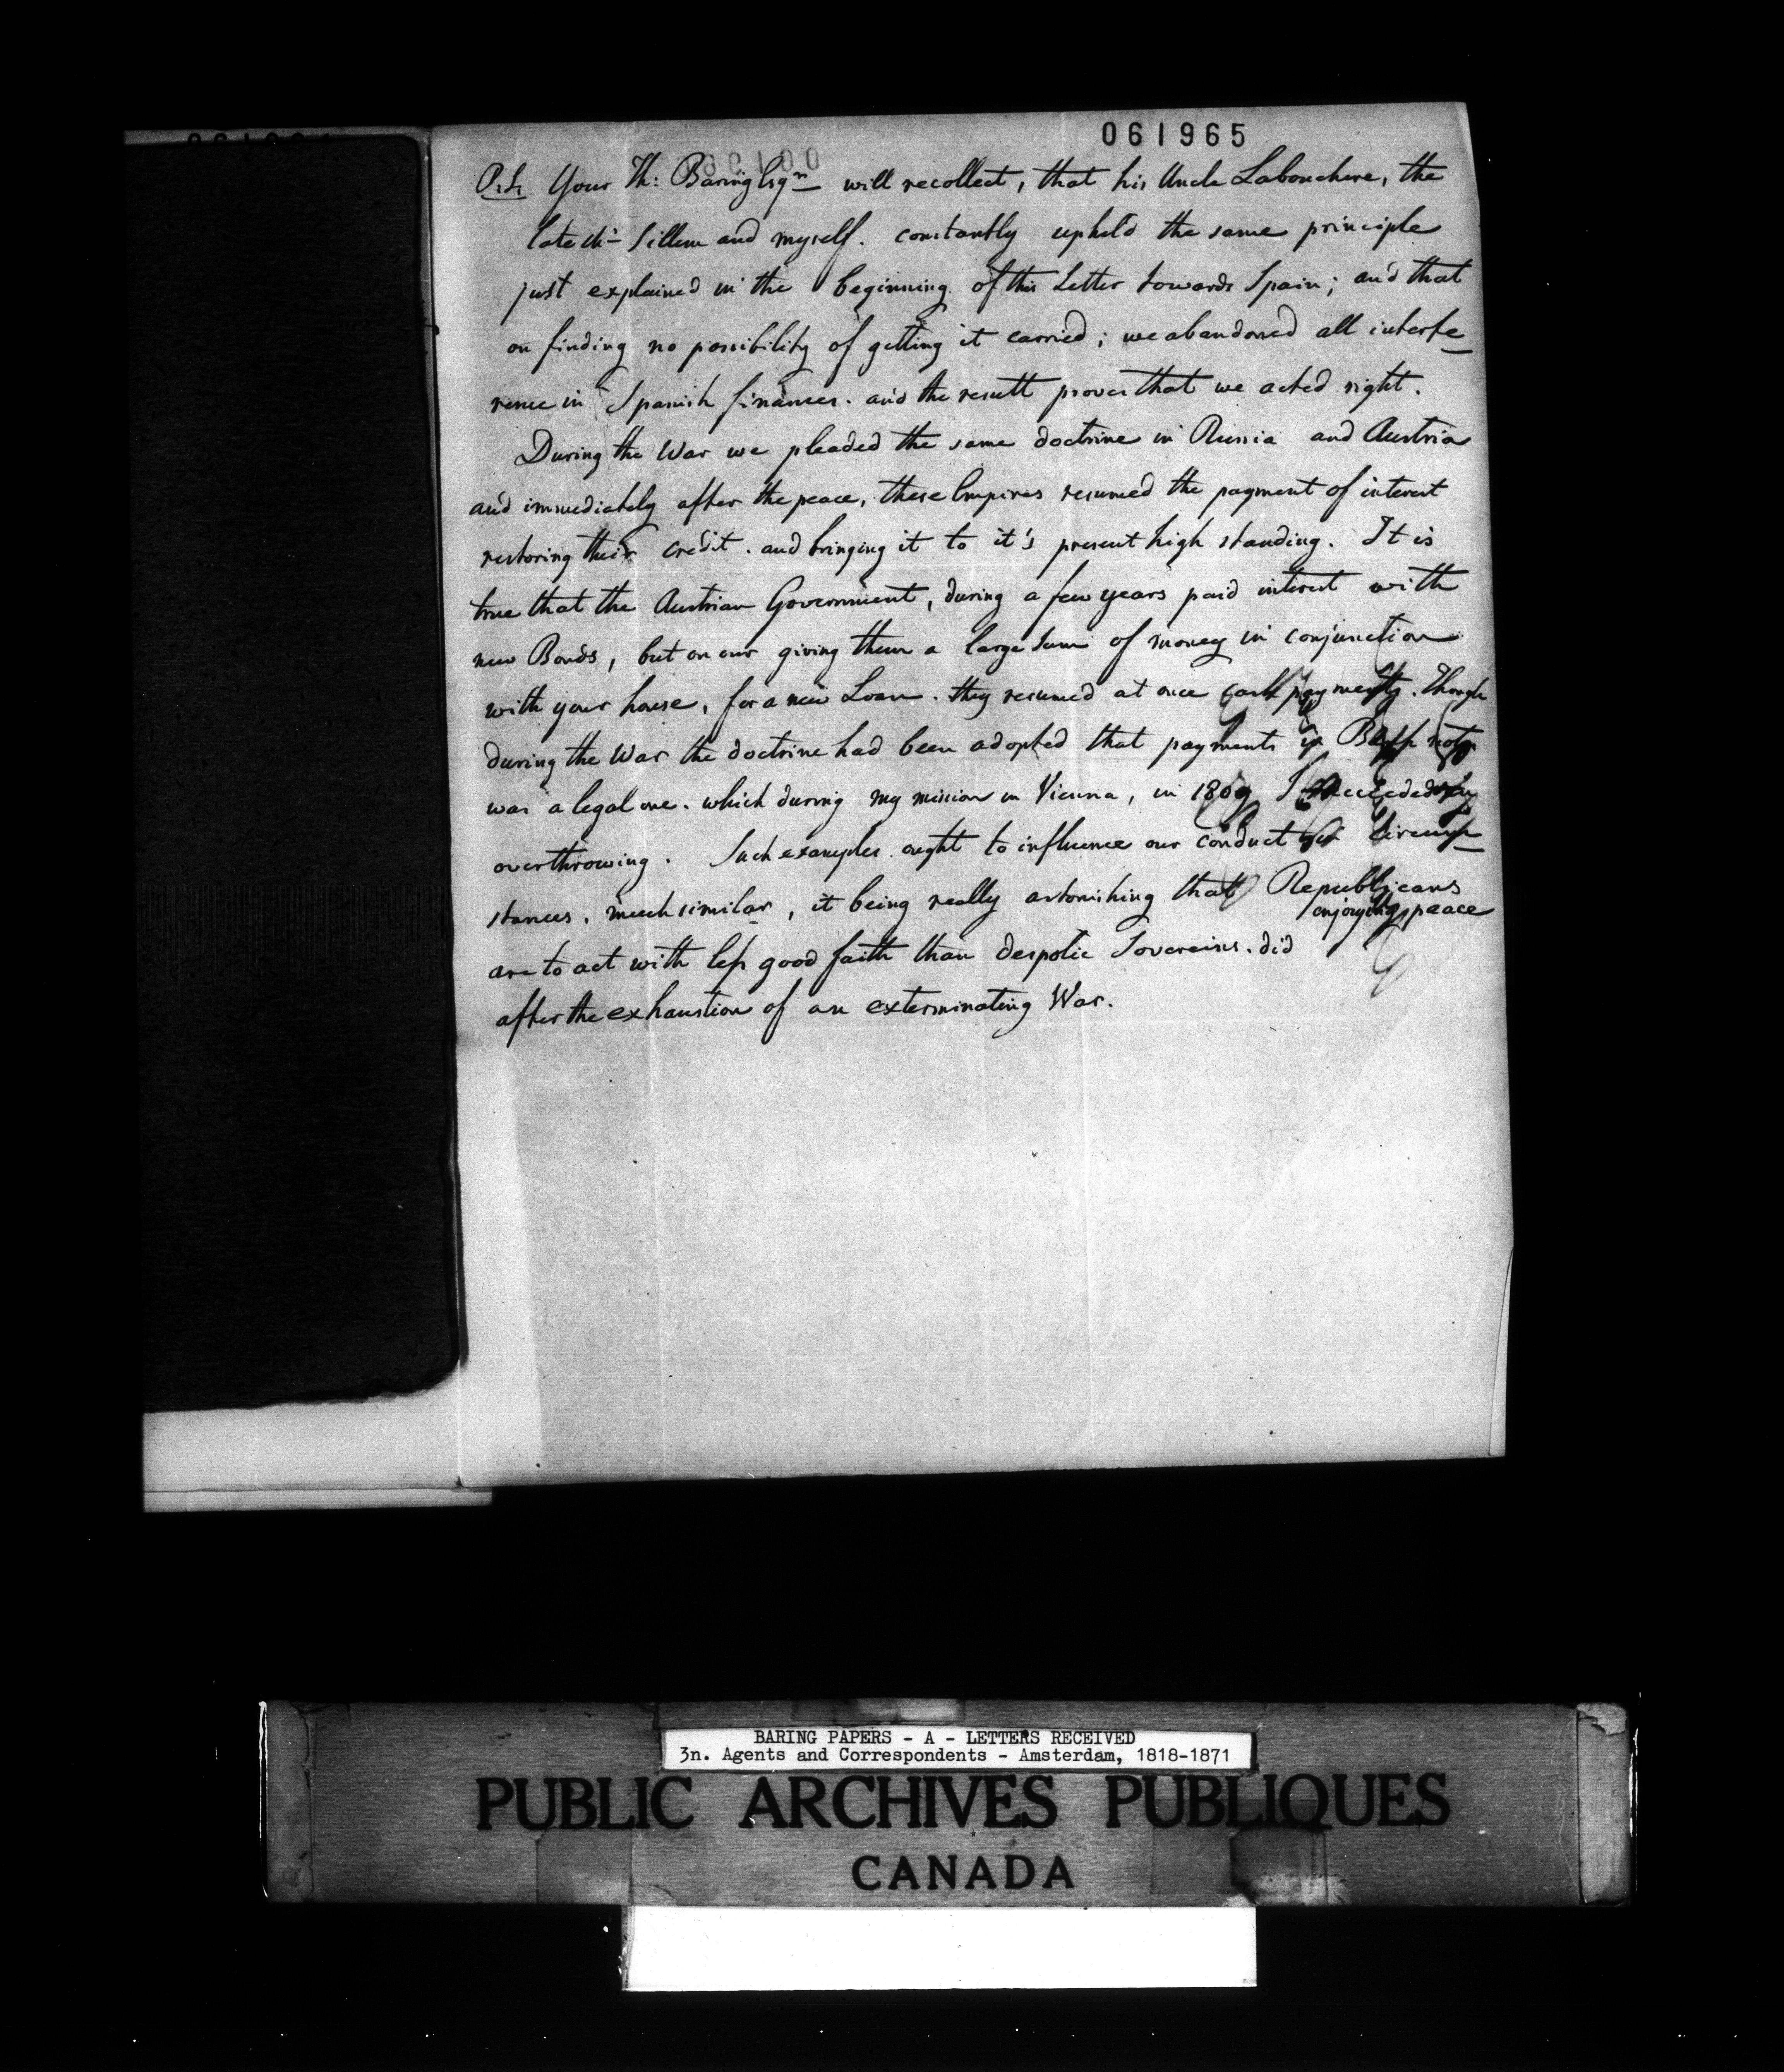 061965
P.S. Your Th: Baring Esqre will recollect, that his Uncle Labouchere, the
late Mr Sillem and myself. constantly upheld the same principle
just explained in the beginning of this Letter towards Spain; and that
on finding no possibility of getting it carried; we abandoned all interfe-
rence in Spanish finances. and the result proves that we acted right.
During the War we pleaded the same doctrine in Russia and Austria
and immediately after the peace, these Empires resumed the payment of interest
restoring their credit. and bringing it to it's present high standing. It is
true that the Austrian Government, during a few years paid interest with
new Bonds, but on our giving them a large sum of money in conjunction
with your house, for a new Loan. they resumed at once cash payments. Though
during the War the doctrine had been adopted that payments in Bank notes
was a legal one. which during my mission in Vienna, in 1809 I succeeded in
overthrowing. Such examples ought to influence our conduct in circum-
stances. much similar, it being really astonishing that Republicans
enjoying peace
are to act with less good faith than despotic Sovereins. did
after the exhaustion of an exterminating War.
BARING PAPERS - A - LETTERS RECEIVED
3n. Agents and Correspondents - Amsterdam, 1818-1871
PUBLIC ARCHIVES PUBLIQUES
CANADA